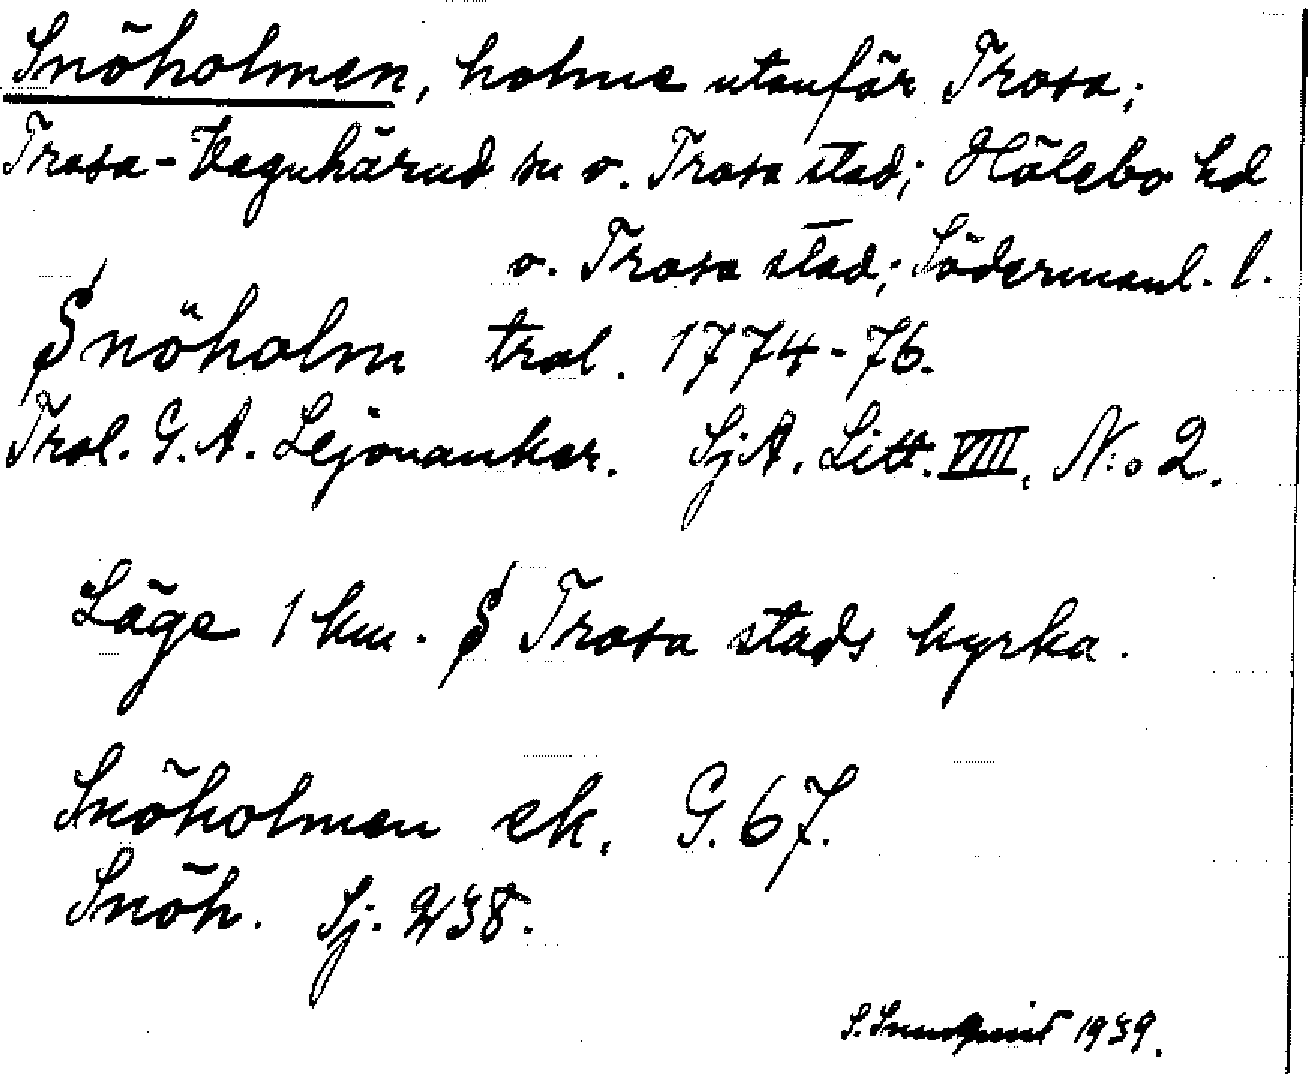 Snöholmen, holme utanför Trosa;
Trosa-Vagnhärad sn o. Trosa stad; Hölebo hd
o. Trosa stad; Södermanl. l.
Snöholm trol. 1774-76.
Trol. G. A. Lejonankar. SjA. Litt. VIII. N:o 2.
Läge 1 km. S Trosa stads kyrka.
Snöholmen ek. G. 67.
Snöh. Sj. 238.
S. 1939.